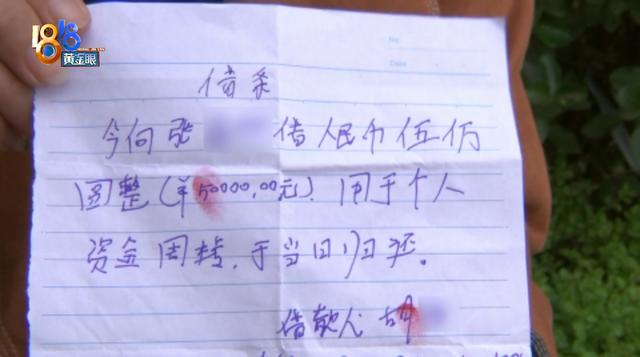 1818
黄金眼
No
Date
借条
今向张 借人民币伍仟
圆整(¥50000.00元).用于个人
资金周转,于当日归还。
借款人 胡